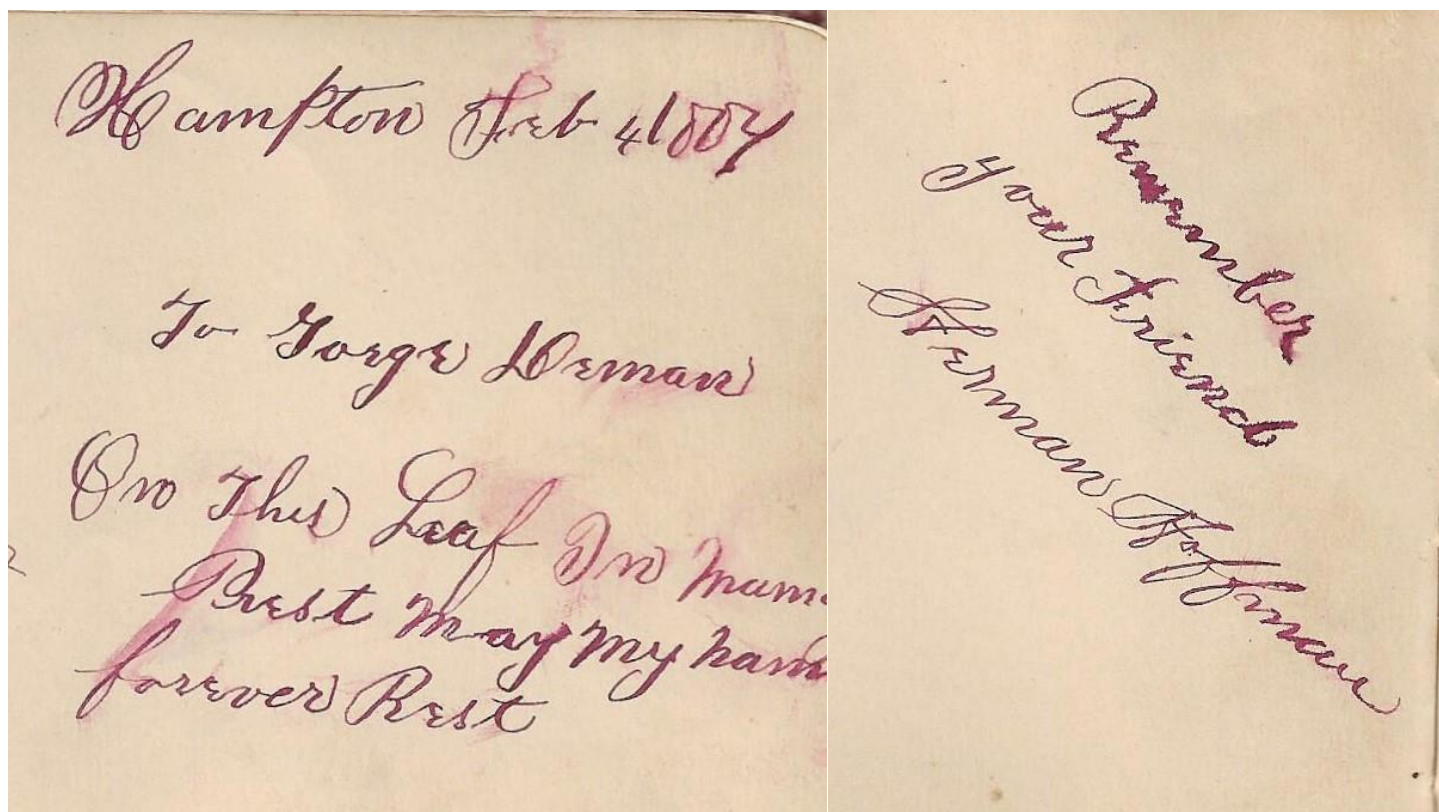 Hampton Feb 4 1887
To Gorge Deman
On This Leaf In
Prest May My
forever Rest
Remember
your Friend
Herman Hoffman